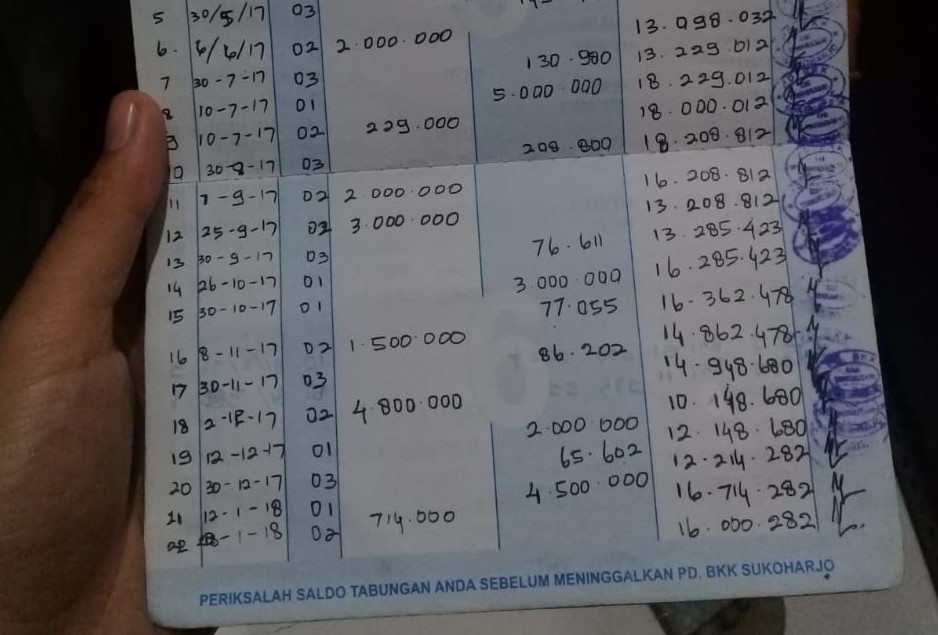 5 30/5/17 03 13.098.032
6. 6/6/17 02 2.000.000
7 30-7-17 03 130.980 13.229.012
8 10-7-17 01 5.000.000 18.229.012
9 10-7-17 02 229.000 18.000.012
10 30-8-17 03 208.800 18.208.812
11 7-9-17 02 2.000.000 16.208.812
12 25-9-17 02 3.000.000 13.208.812
13 30-9-17 03 76.611 13.285.423
14 26-10-17 01 3.000.000 16.285.423
15 30-10-17 01 77.055 16.362.478
16 8-11-17 02 1.500.000 14.862.478
17 30-11-17 03 86.202 14.948.680
18 2-12-17 02 4.800.000 10.148.680
19 12-12-17 01 2.000.000 12.148.680
20 30-12-17 03 65.602 12.214.282
21 12-1-18 01 4.500.000 16.714.282
22 18-1-18 02 714.000 16.000.282
PERIKSALAH SALDO TABUNGAN ANDA SEBELUM MENINGGALKAN PD. BKK SUKOHARJO